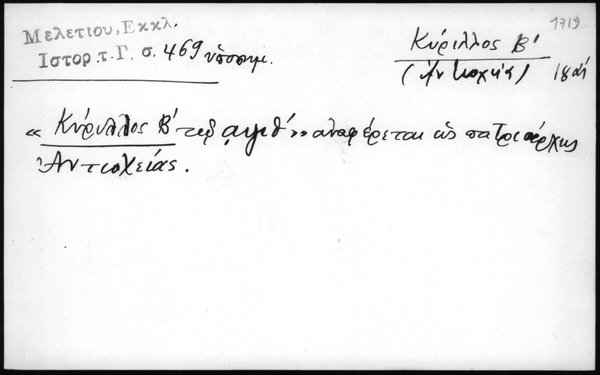 1719
Μελετίου, Εκκλ.
Ιστορ. τ. Γ. σ. 469 ὑποσημ.
Κύριλλος Β'
(Ἀντιοχείας) 18 αἰ
« Κύριλλος Β' τῷ αψιθ' » ἀναφέρεται ὡς πατριάρχης
Ἀντιοχείας.